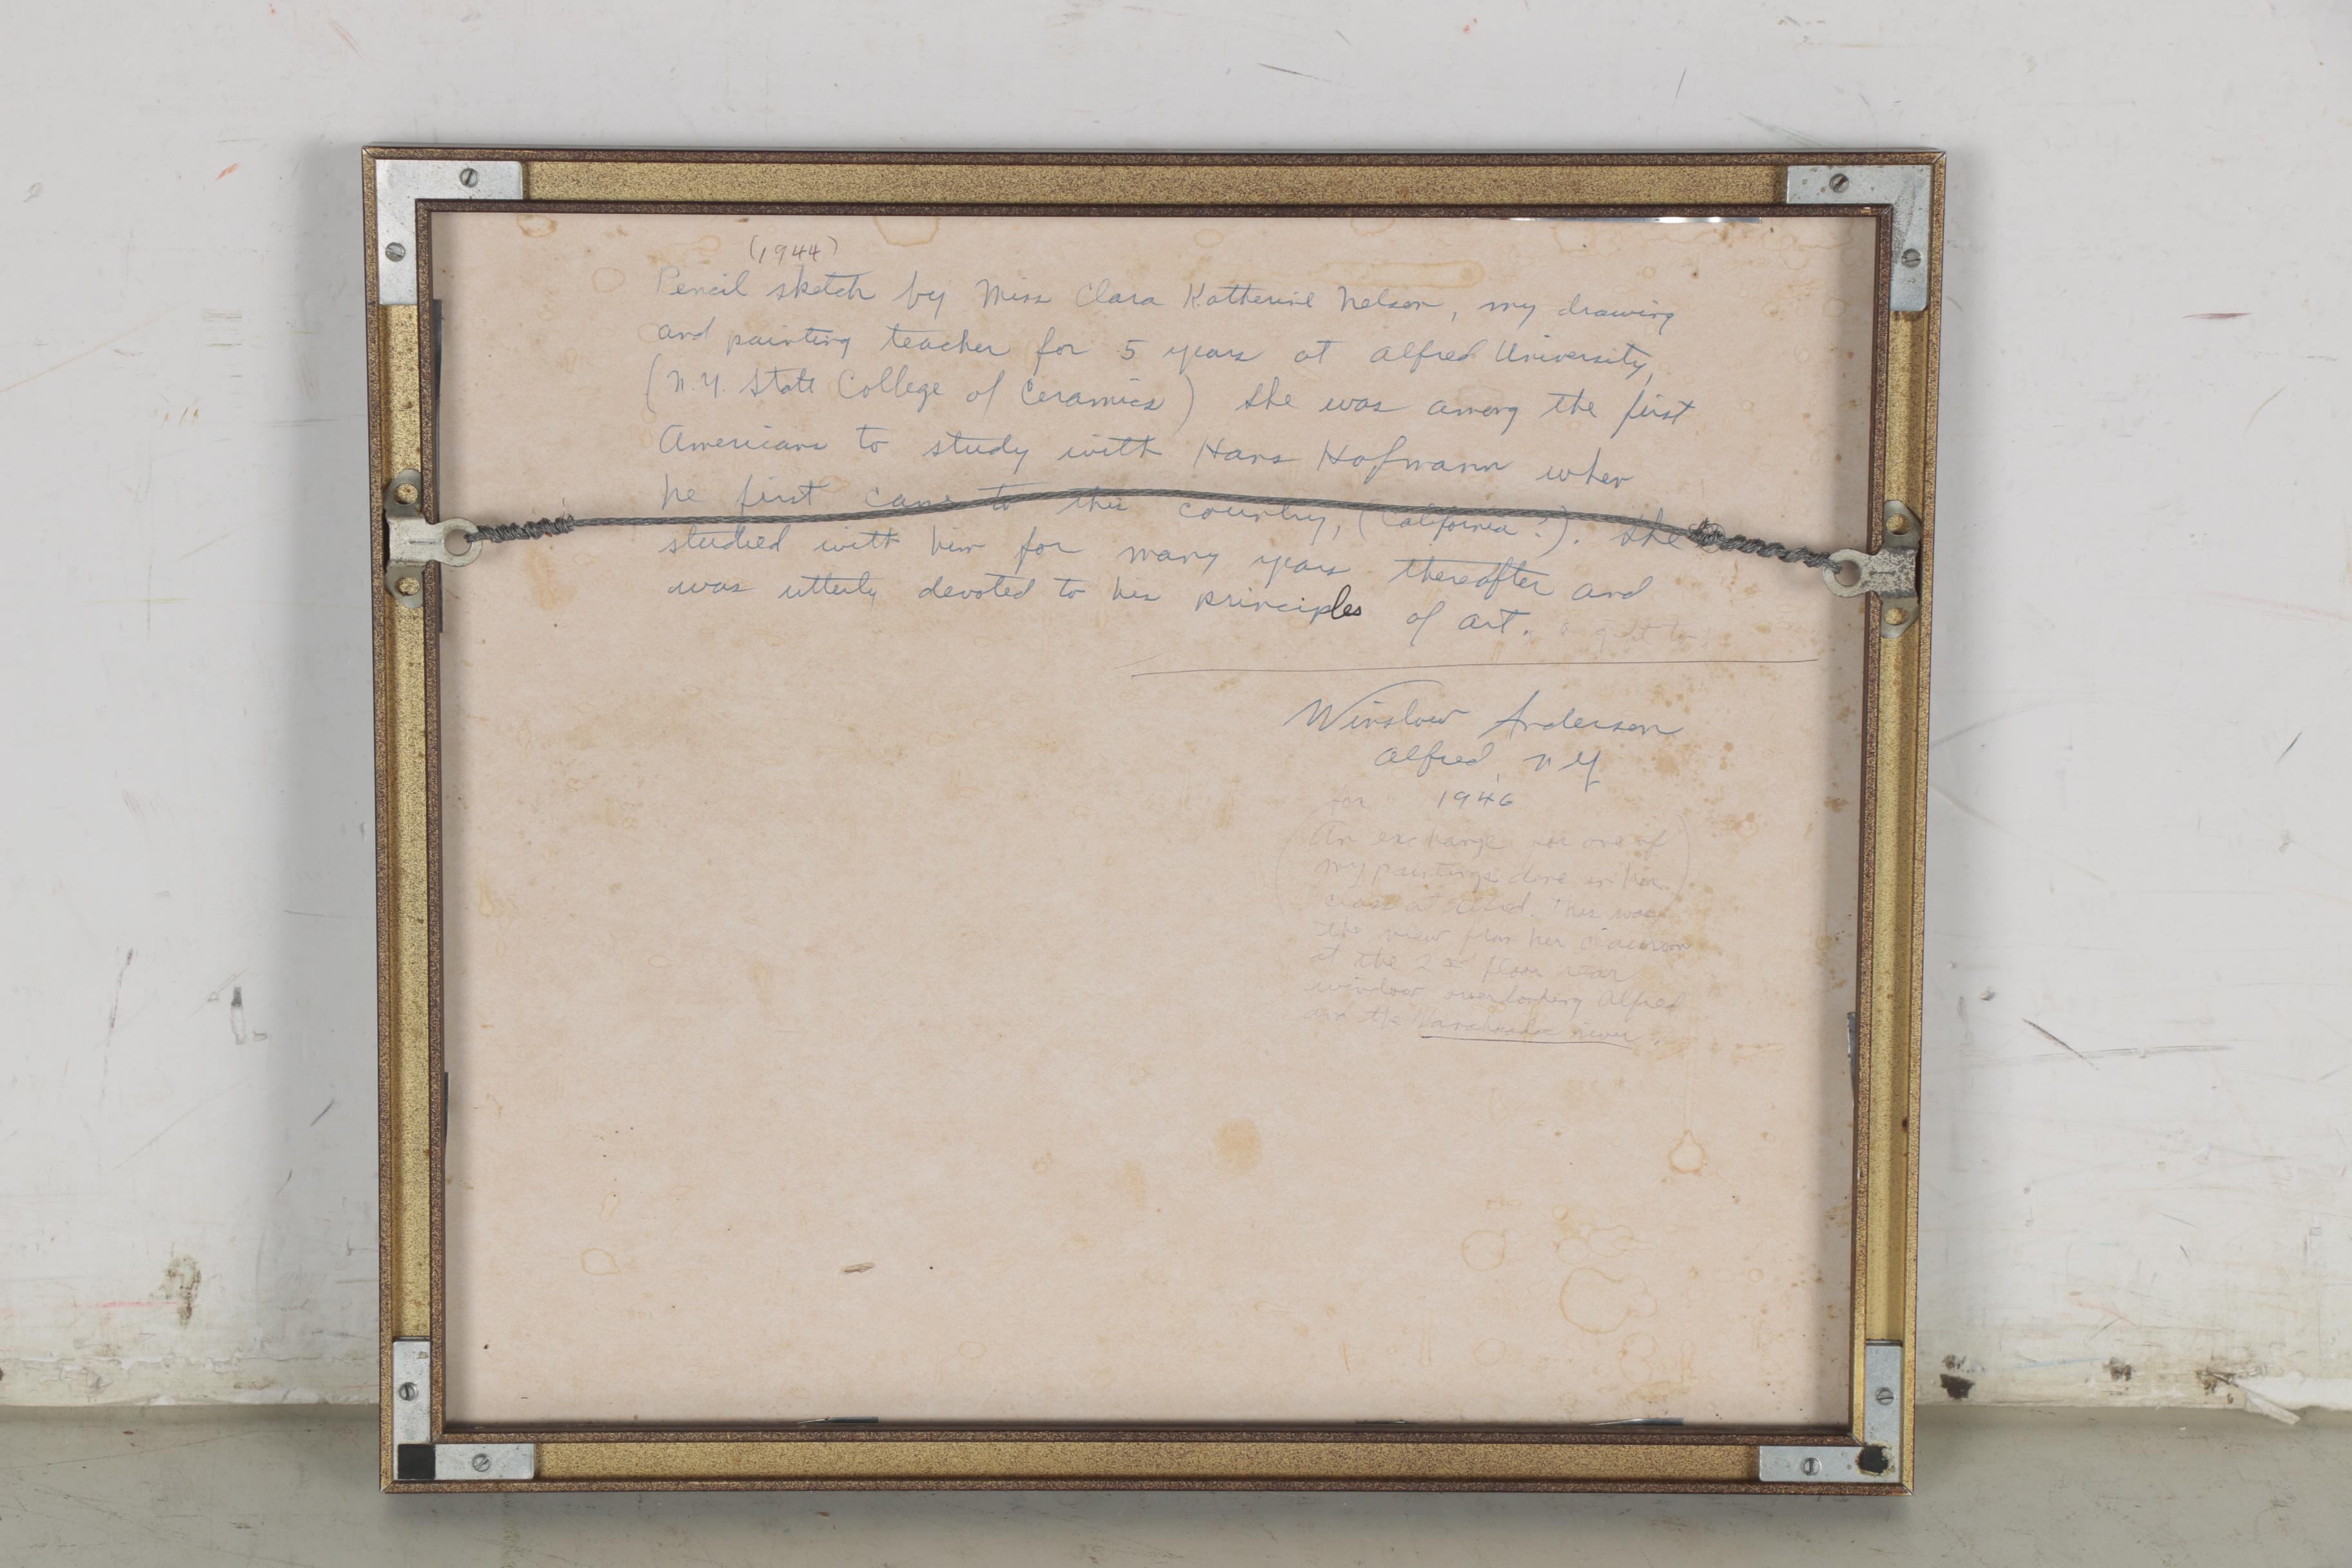 (1944)
Pencil sketch by Miss Clara Katherine Nelson, my drawing
and painting teacher for 5 years at Alfred University,
(N.Y. State College of Ceramics) She was among the first
Americans to study with Hans Hofmann when
he first came to this country, (California?). She
studied with him for many years thereafter and
was utterly devoted to his principles of art.
Winslow Anderson
Alfred, NY
for 1946
(An exchange for one of
my paintings done in her)
class at Alfred. This was
the view from her classroom
at the 2nd floor rear
window overlooking Alfred
and the river.